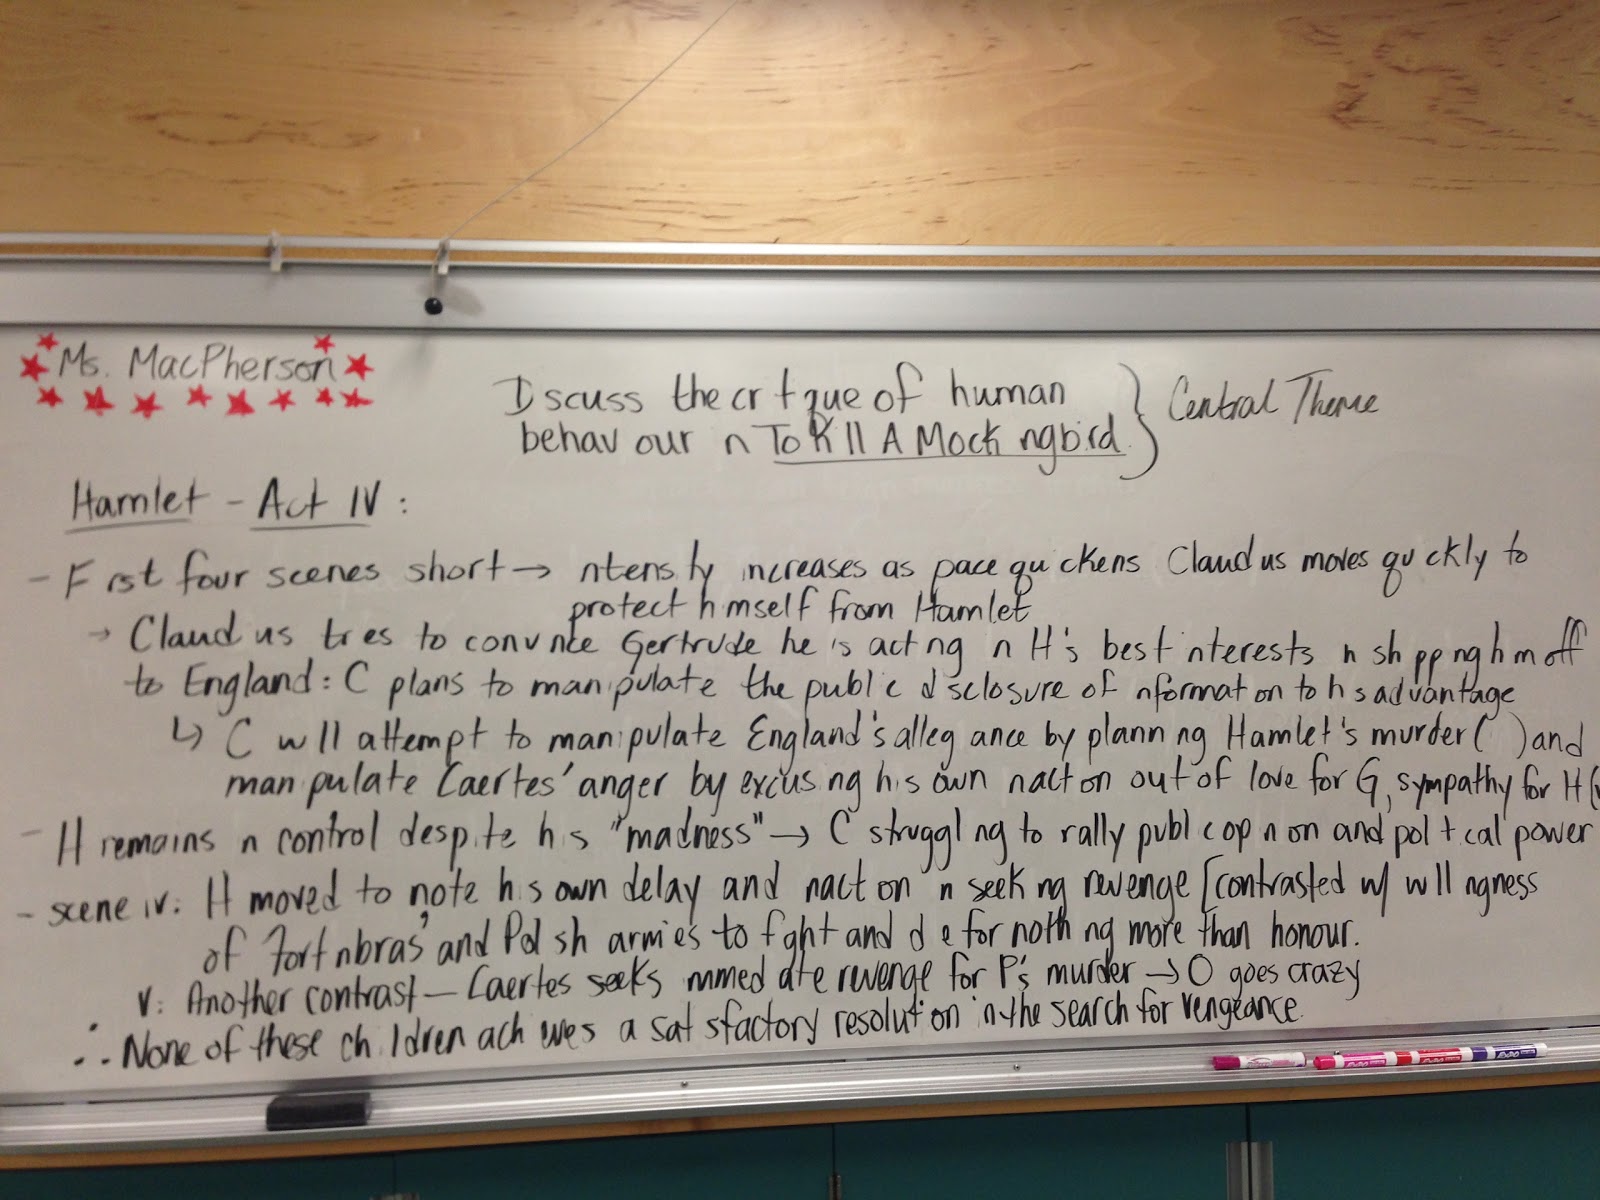 Ms. MacPherson
D scuss the cr t que of human
behav our n To K ll A Mock ngbird.
Central Theme
Hamlet - Act IV:
- F rst four scenes short → ntens ty increases as pace qu ckens Claud us moves qu ckly to
protect h mself from Hamlet
→ Claud us tr es to conv nce Gertrude he is act ng n H's best nterests n sh pp ng h m off
to England: C plans to man pulate the publ c d sclosure of nformat on to h s advantage
↳ C w ll attempt to man pulate England's alleg ance by plann ng Hamlet's murder ( ) and
man pulate Laertes' anger by excus ng h s own nact on out of love for G, sympathy for H (
- H remains n control despite h s "madness" → C struggl ng to rally publ c op n on and pol t cal power
- scene iv: H moved to note h s own delay and nact on n seek ng revenge [contrasted w/ w ll ngness
of Fort nbras' and Pol sh armies to f ght and d e for noth ng more than honour.
v: Another contrast - Laertes seeks mmed ate revenge for P's murder → O goes crazy
∴ None of these ch ldren ach eves a sat sfactory resolut on in the search for vengeance.